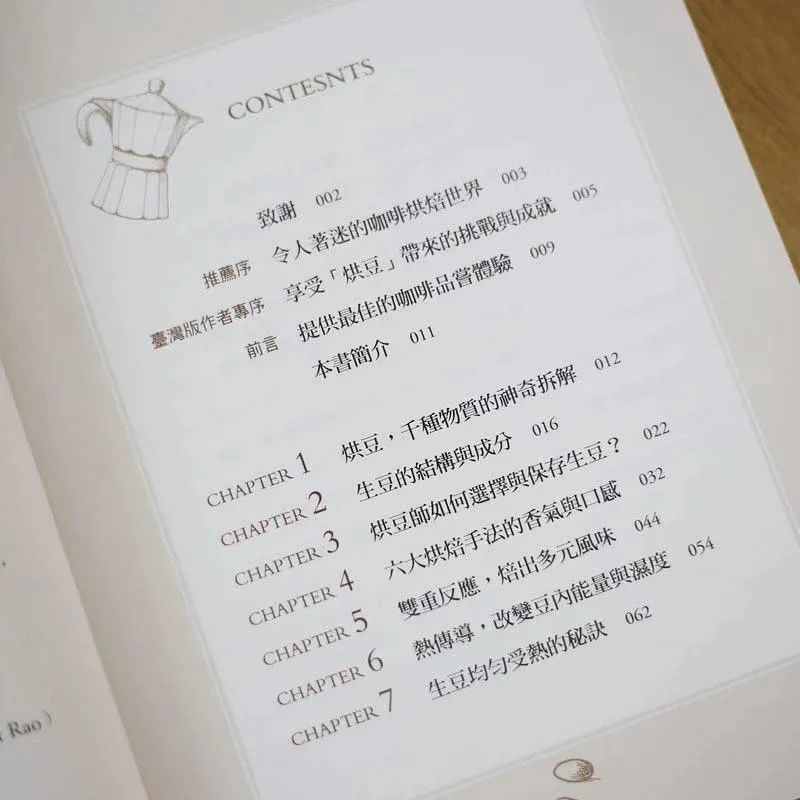 CONTESNTS
致謝 002
推薦序 令人著迷的咖啡烘焙世界 003
臺灣版作者專序 享受「烘豆」帶來的挑戰與成就 005
前言 提供最佳的咖啡品嘗體驗 009
本書簡介 011
CHAPTER 1 烘豆，千種物質的神奇拆解 012
CHAPTER 2 生豆的結構與成分 016
CHAPTER 3 烘豆師如何選擇與保存生豆？ 022
CHAPTER 4 六大烘焙手法的香氣與口感 032
CHAPTER 5 雙重反應，焙出多元風味 044
CHAPTER 6 熱傳導，改變豆內能量與濕度 054
CHAPTER 7 生豆均勻受熱的秘訣 062
Rao）